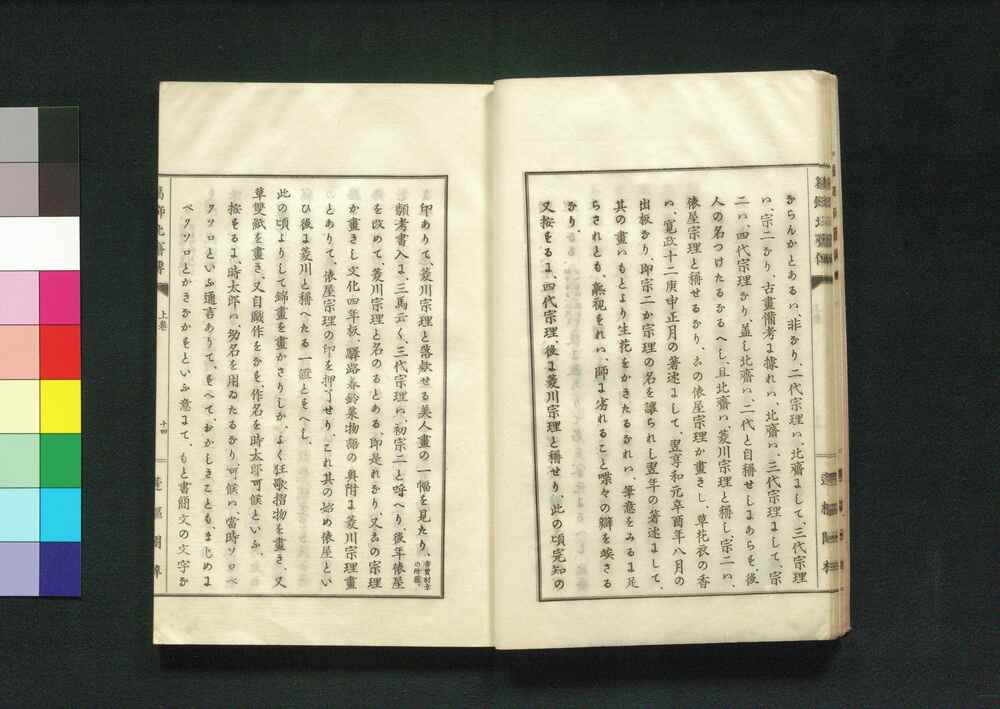 からんかとあるハ、非なり、二代宗理ハ、北齋にして、三代宗理
ハ、宗二なり、古畫備考に據れハ、北齋ハ、三代宗理にして、宗
二ハ、四代宗理なり、蓋し北齋ハ、二代と自稱せしにあらを、後
人の名つけたるなるへし、且北齋ハ、菱川宗理と稱し、宗二ハ、
俵屋宗理と稱せるなり、右の俵屋宗理か畫きし、草花衣の香
ハ、寛政十二庚申正月の著述にして、翌享和元辛酉年八月の
出板なり、即宗二か宗理の名を讓られし翌年の著述にして、
其の畫ハもとより生花をかきたるなれハ、筆意をみるに足
らされとも、熟視をれハ、師に劣れること喋々の辯を竢さる
なり、
又按をるに、四代宗理、後に菱川宗理と稱せり、此の頃完知の
印ありて、菱川宗理と落欵せる美人畫の一幅を見たり、
願考書入に、三馬云く、三代宗理ハ、初宗二と呼へり、後年俵屋
を改めて、菱川宗理と名のるとある、即是れなり、又右の宗理
か畫きし文化四年板、驛路春鈴菓物語の奥附に菱川宗理畫
とありて、俵屋宗理の印を押了せり、これ其の始め俵屋とい
ひ後に菱川と稱へたる一證とをへし、
此の頃よりして錦畫を畫かさりしか、よく狂歌摺物を畫き、又
草雙紙を畫き、又自戯作をなを、作名を時太郎可候といふ、
按をるに、時太郎ハ、幼名を用ゐたるなり、可候ハ、當時ソロベ
クソロといふ通言ありて、をへて、おかしきことも、まじめに
ベクソロとかきなかをといふ意にて、もと書簡文の文字な
上卷
十四